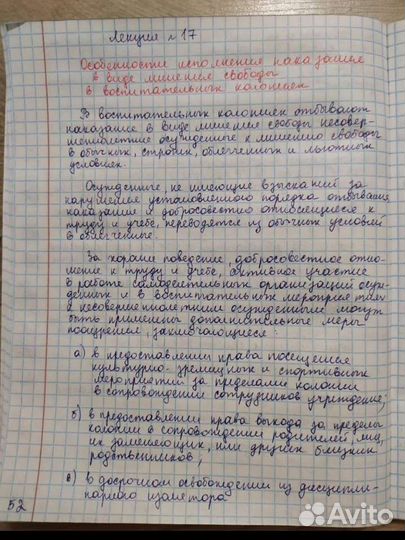 Лекция №17
Особенности исполнения наказания
в виде лишения свободы
в воспитательных колониях
В воспитательных колониях отбывают
наказание в виде лишения свободы несовер-
шеннолетние осужденные к лишению свободы
в обычных, строгих, облегченных и льготных
условиях.
Осужденные, не имеющие взысканий за
нарушения установленного порядка отбывания
наказания и добросовестно относящиеся к
труду и учебе, переводятся из обычных условий
в облегченные.
За хорошее поведение, добросовестное отно-
шение к труду и учебе, активное участие
в работе самодеятельных организаций осуж-
денных и в воспитательных мероприятиях
к несовершеннолетним осужденным могут
быть применены дополнительные меры
поощрения, заключающиеся:
а) в предоставлении права посещения
культурно-зрелищных и спортивных
мероприятий за пределами колонии
в сопровождении сотрудников учреждения;
б) в предоставлении права выхода за пределы
колонии в сопровождении родителей, лиц,
их заменяющих, или других близких
родственников;
в) в досрочном освобождении из дисципли-
нарного изолятора
52
Avito